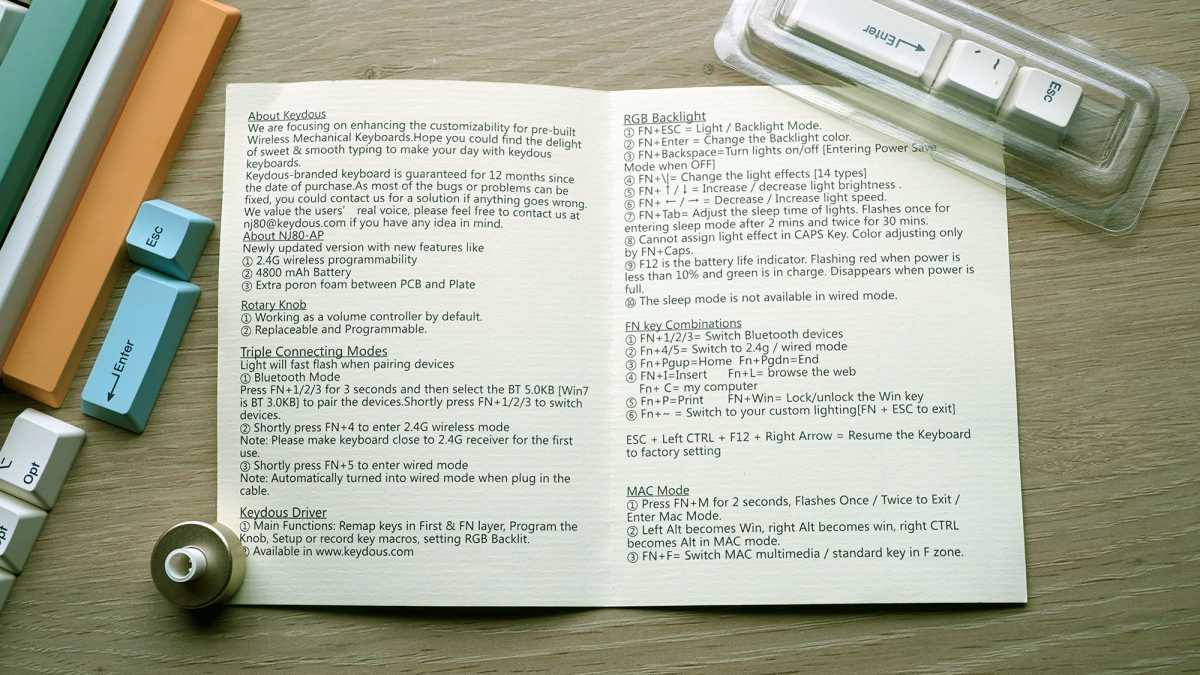 About Keydous
We are focusing on enhancing the customizability for pre-built
Wireless Mechanical Keyboards.Hope you could find the delight
of sweet & smooth typing to make your day with keydous
keyboards.
Keydous-branded keyboard is guaranteed for 12 months since
the date of purchase.As most of the bugs or problems can be
fixed, you could contact us for a solution if anything goes wrong.
We value the users' real voice, please feel free to contact us at
nj80@keydous.com if you have any idea in mind.
About NJ80-AP
Newly updated version with new features like
① 2.4G wireless programmability
② 4800 mAh Battery
③ Extra poron foam between PCB and Plate
Rotary Knob
① Working as a volume controller by default.
② Replaceable and Programmable.
Triple Connecting Modes
Light will fast flash when pairing devices
① Bluetooth Mode
Press FN+1/2/3 for 3 seconds and then select the BT 5.0KB [Win7
is BT 3.0KB] to pair the devices.Shortly press FN+1/2/3 to switch
devices.
② Shortly press FN+4 to enter 2.4G wireless mode
Note: Please make keyboard close to 2.4G receiver for the first
use.
③ Shortly press FN+5 to enter wired mode
Note: Automatically turned into wired mode when plug in the
cable.
Keydous Driver
① Main Functions: Remap keys in First & FN layer, Program the
Knob, Setup or record key macros, setting RGB Backlit.
② Available in www.keydous.com
RGB Backlight
① FN+ESC = Light / Backlight Mode.
② FN+Enter = Change the Backlight color.
③ FN+Backspace=Turn lights on/off [Entering Power Save
Mode when OFF]
④ FN+\|= Change the light effects [14 types]
⑤ FN+ ↑ / ↓ = Increase / decrease light brightness .
⑥ FN+ ← / → = Decrease / Increase light speed.
⑦ FN+Tab= Adjust the sleep time of lights. Flashes once for
entering sleep mode after 2 mins and twice for 30 mins.
⑧ Cannot assign light effect in CAPS Key. Color adjusting only
by FN+Caps.
⑨ F12 is the battery life indicator. Flashing red when power is
less than 10% and green is in charge. Disappears when power is
full.
⑩ The sleep mode is not available in wired mode.
FN key Combinations
① FN+1/2/3= Switch Bluetooth devices
② Fn+4/5= Switch to 2.4g / wired mode
③ Fn+Pgup=Home Fn+Pgdn=End
④ FN+I=Insert Fn+L= browse the web
Fn+ C= my computer
⑤ Fn+P=Print FN+Win= Lock/unlock the Win key
⑥ Fn+~ = Switch to your custom lighting[FN + ESC to exit]
ESC + Left CTRL + F12 + Right Arrow = Resume the Keyboard
to factory setting
MAC Mode
① Press FN+M for 2 seconds, Flashes Once / Twice to Exit /
Enter Mac Mode.
② Left Alt becomes Win, right Alt becomes win, right CTRL
becomes Alt in MAC mode.
③ FN+F= Switch MAC multimedia / standard key in F zone.
Esc
Enter
Opt
Enter
Esc